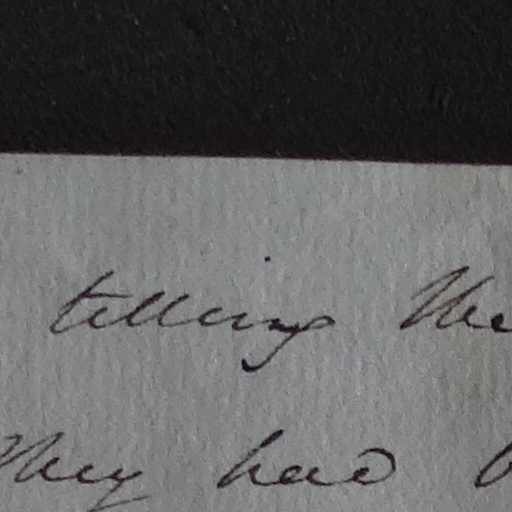 telling the
they had